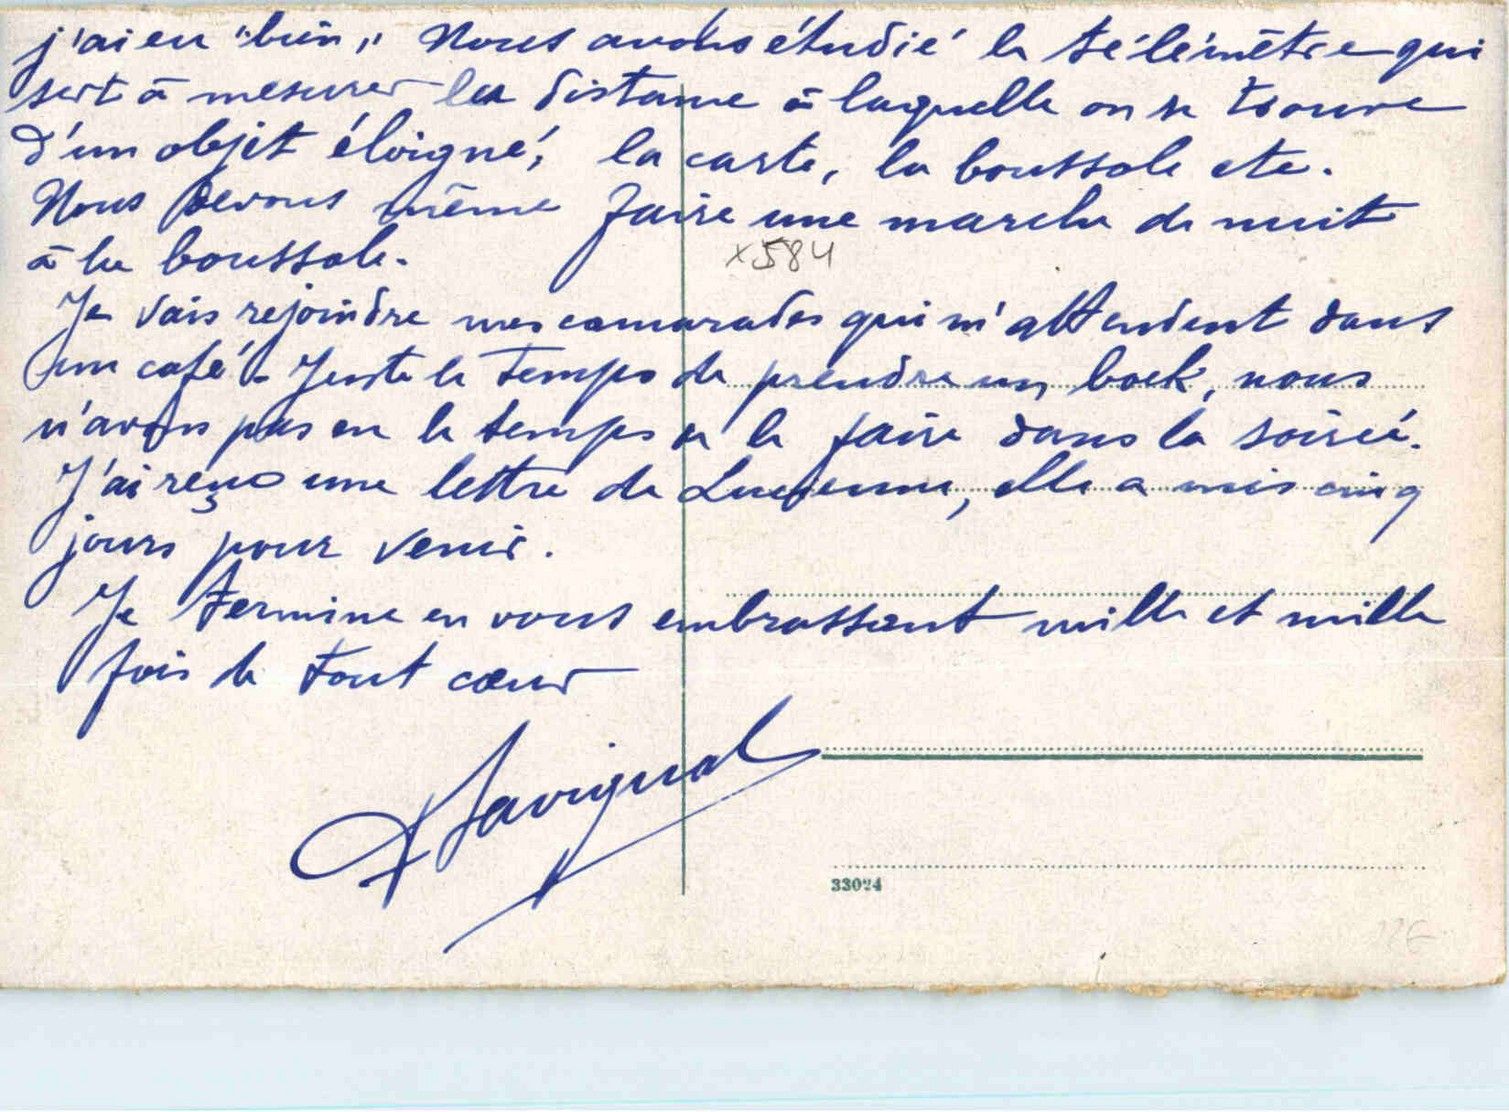 j'ai eu "bien," Nous avons étudié le télémètre qui
sert à mesurer la distance à laquelle on se trouve
d'un objet éloigné, la carte, la boussole etc.
Nous devons même faire une marche de nuit
à la boussole.
x584
Je vais rejoindre mes camarades qui m'attendent dans
un café. Juste le temps de prendre un bock, nous
n'avons pas eu le temps de le faire dans la soirée.
J'ai reçu une lettre de Lucienne, elle a mis cinq
jours pour venir.
Je termine en vous embrassant mille et mille
fois de tout cœur
Savignal
33024